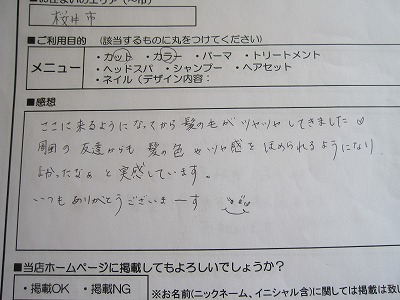 桜井市
■ご利用目的 (該当するものに丸をつけてください)
メニュー
・カット ・カラー ・パーマ ・トリートメント
・ヘッドスパ ・シャンプー ・ヘアセット
・ネイル(デザイン内容:
■感想
ここに来るようになってから髪の毛がツヤツヤしてきました♡
周囲の友達からも 髪の色やツヤ感をほめられるようになり
よかったなぁと実感しています。
いつもありがとうございまーす
■当店ホームページに掲載してもよろしいでしょうか?
・掲載OK ・掲載NG
※お名前(ニックネーム、イニシャル含)に関しては掲載は致し